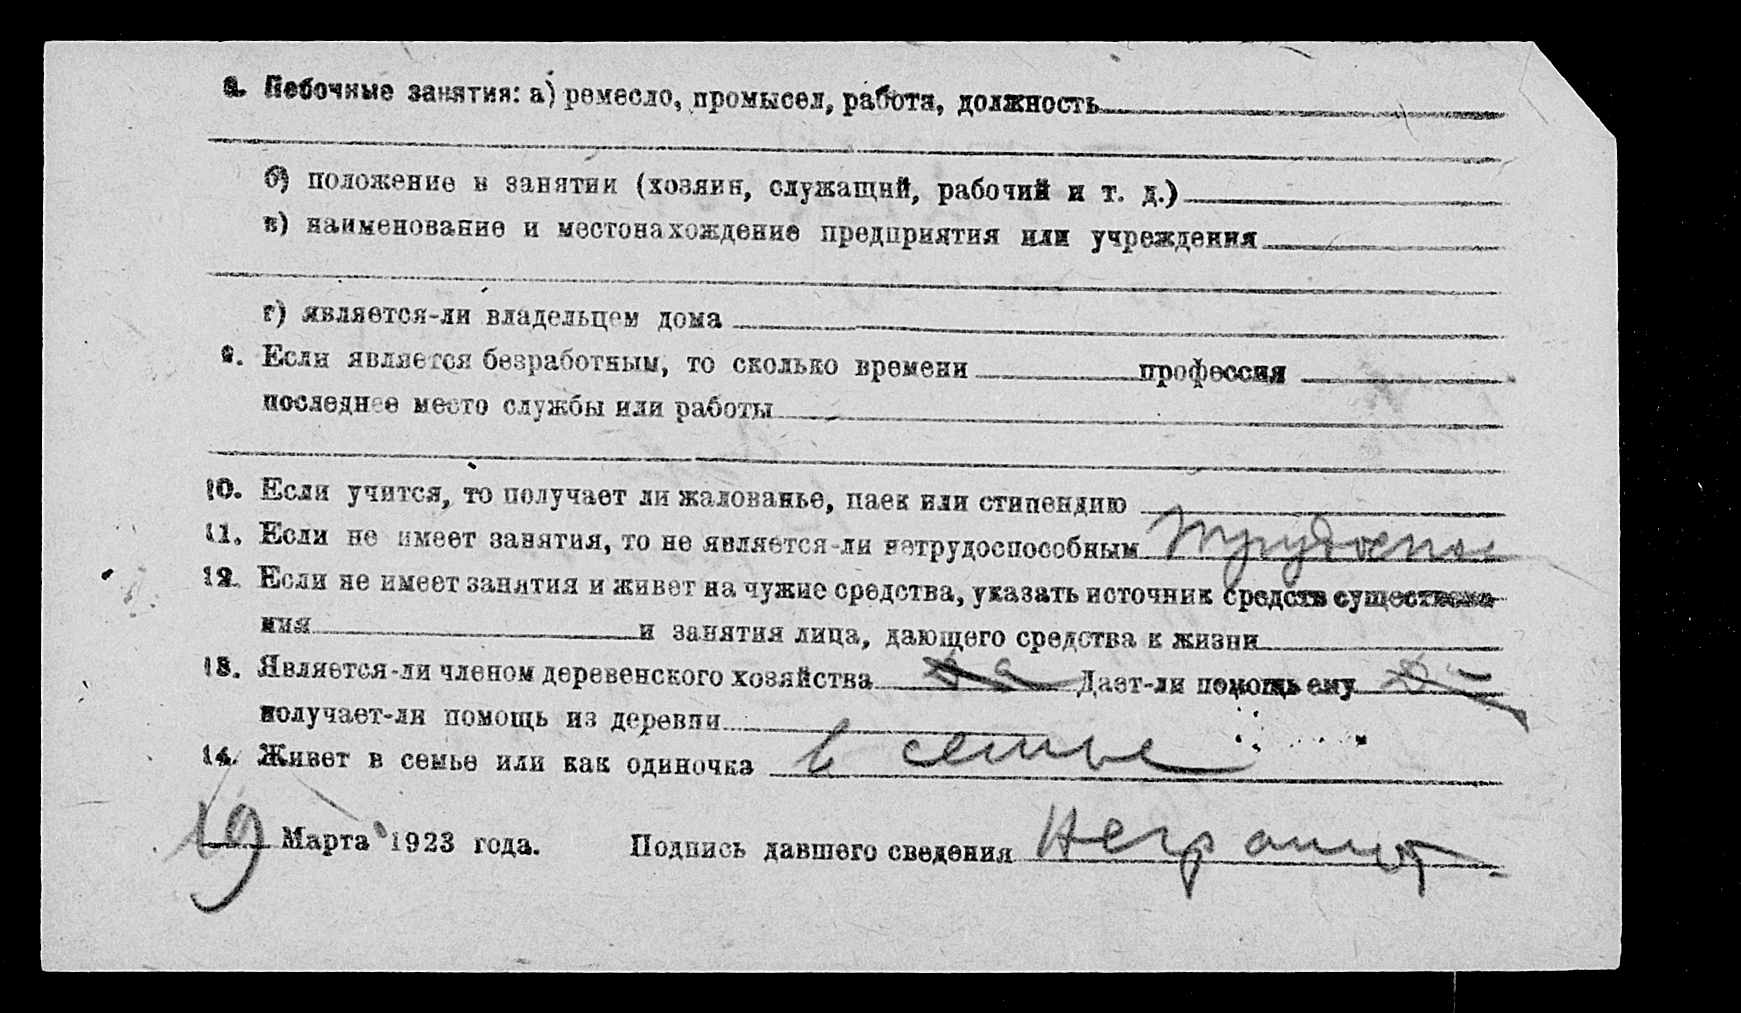 8. Побочные занятия: а) ремесло, промысел, работа, должность
б) положение в занятии (хозяин, служащий, рабочий и т. д.)
в) наименование и местонахождение предприятия или учреждения
г) является-ли владельцем дома
9. Если является безработным, то сколько времени профессия
последнее место службы или работы
10. Если учится, то получает ли жалованье, паек или стипендию
11. Если не имеет занятия, то не является-ли нетрудоспособным трудоспос
12. Если не имеет занятия и живет на чужие средства, указать источник средств существова-
ния и занятия лица, дающего средства к жизни
13. Является-ли членом деревенского хозяйства да Дает-ли помощь ему
получает-ли помощь из деревни
14. Живет в семье или как одиночка в семье
19 Марта 1923 года. Подпись давшего сведения Неграмот.